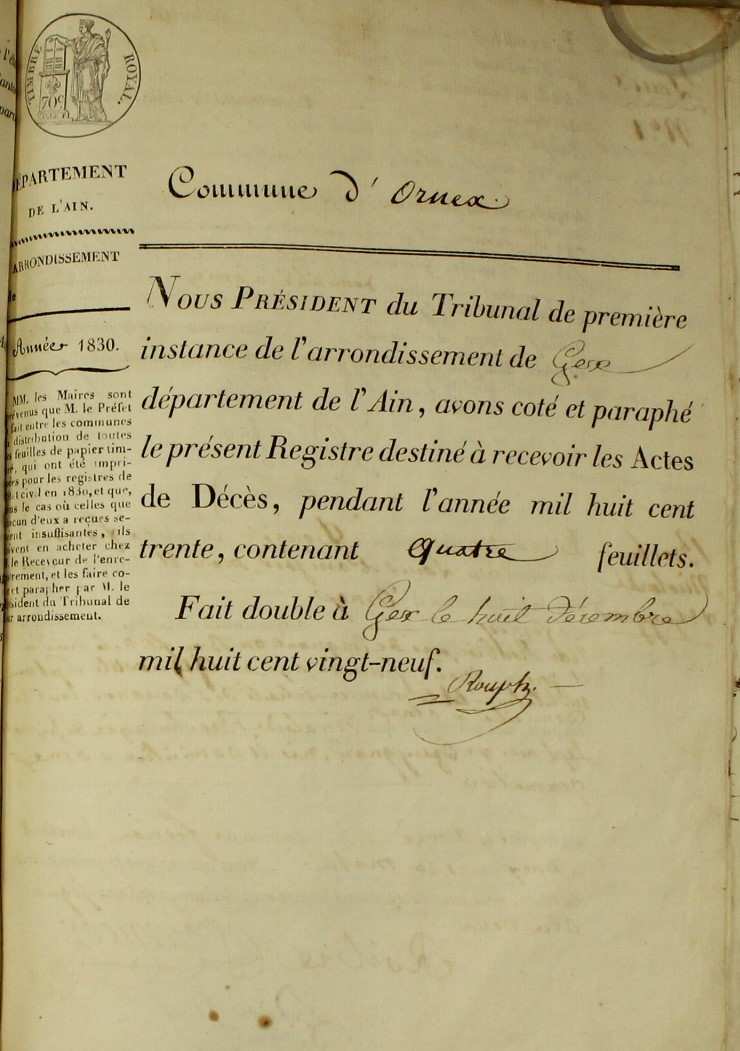 TIMBRE ROYAL.
DÉPARTEMENT
DE L'AIN.
ARRONDISSEMENT
de
Année 1830.
MM. les Maires sont
prévenus que M. le Préfet
fait entre les communes
distribution de toutes
feuilles de papier tim-
qui ont été impri-
pour les registres de
civil en 1830, et que,
le cas où celles que
d'eux a reçues se-
insuffisantes, ils
en acheter chez
le Receveur de l'enre-
et les faire co-
et parapher par M. le
Président du Tribunal de
arrondissement.
Commune d'Ornex.
NOUS PRÉSIDENT du Tribunal de première
instance de l'arrondissement de Gex
département de l'Ain, avons coté et paraphé
le présent Registre destiné à recevoir les Actes
de Décès, pendant l'année mil huit cent
trente, contenant quatre feuillets.
Fait double à Gex le huit décembre
mil huit cent vingt-neuf.